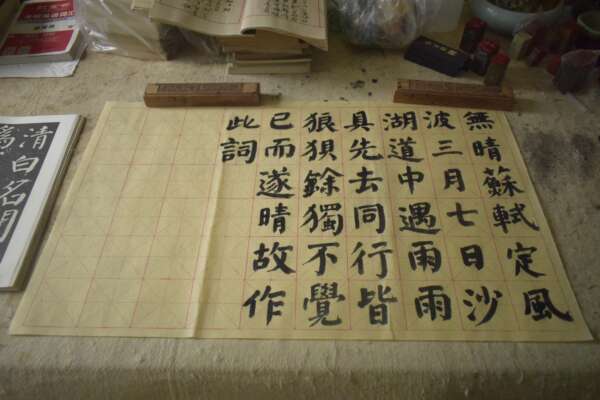 無晴蘇軾定風
波三月七日沙
湖道中遇雨雨
具先去同行皆
狼狽餘獨不覺
已而遂晴故作
此詞
清白名